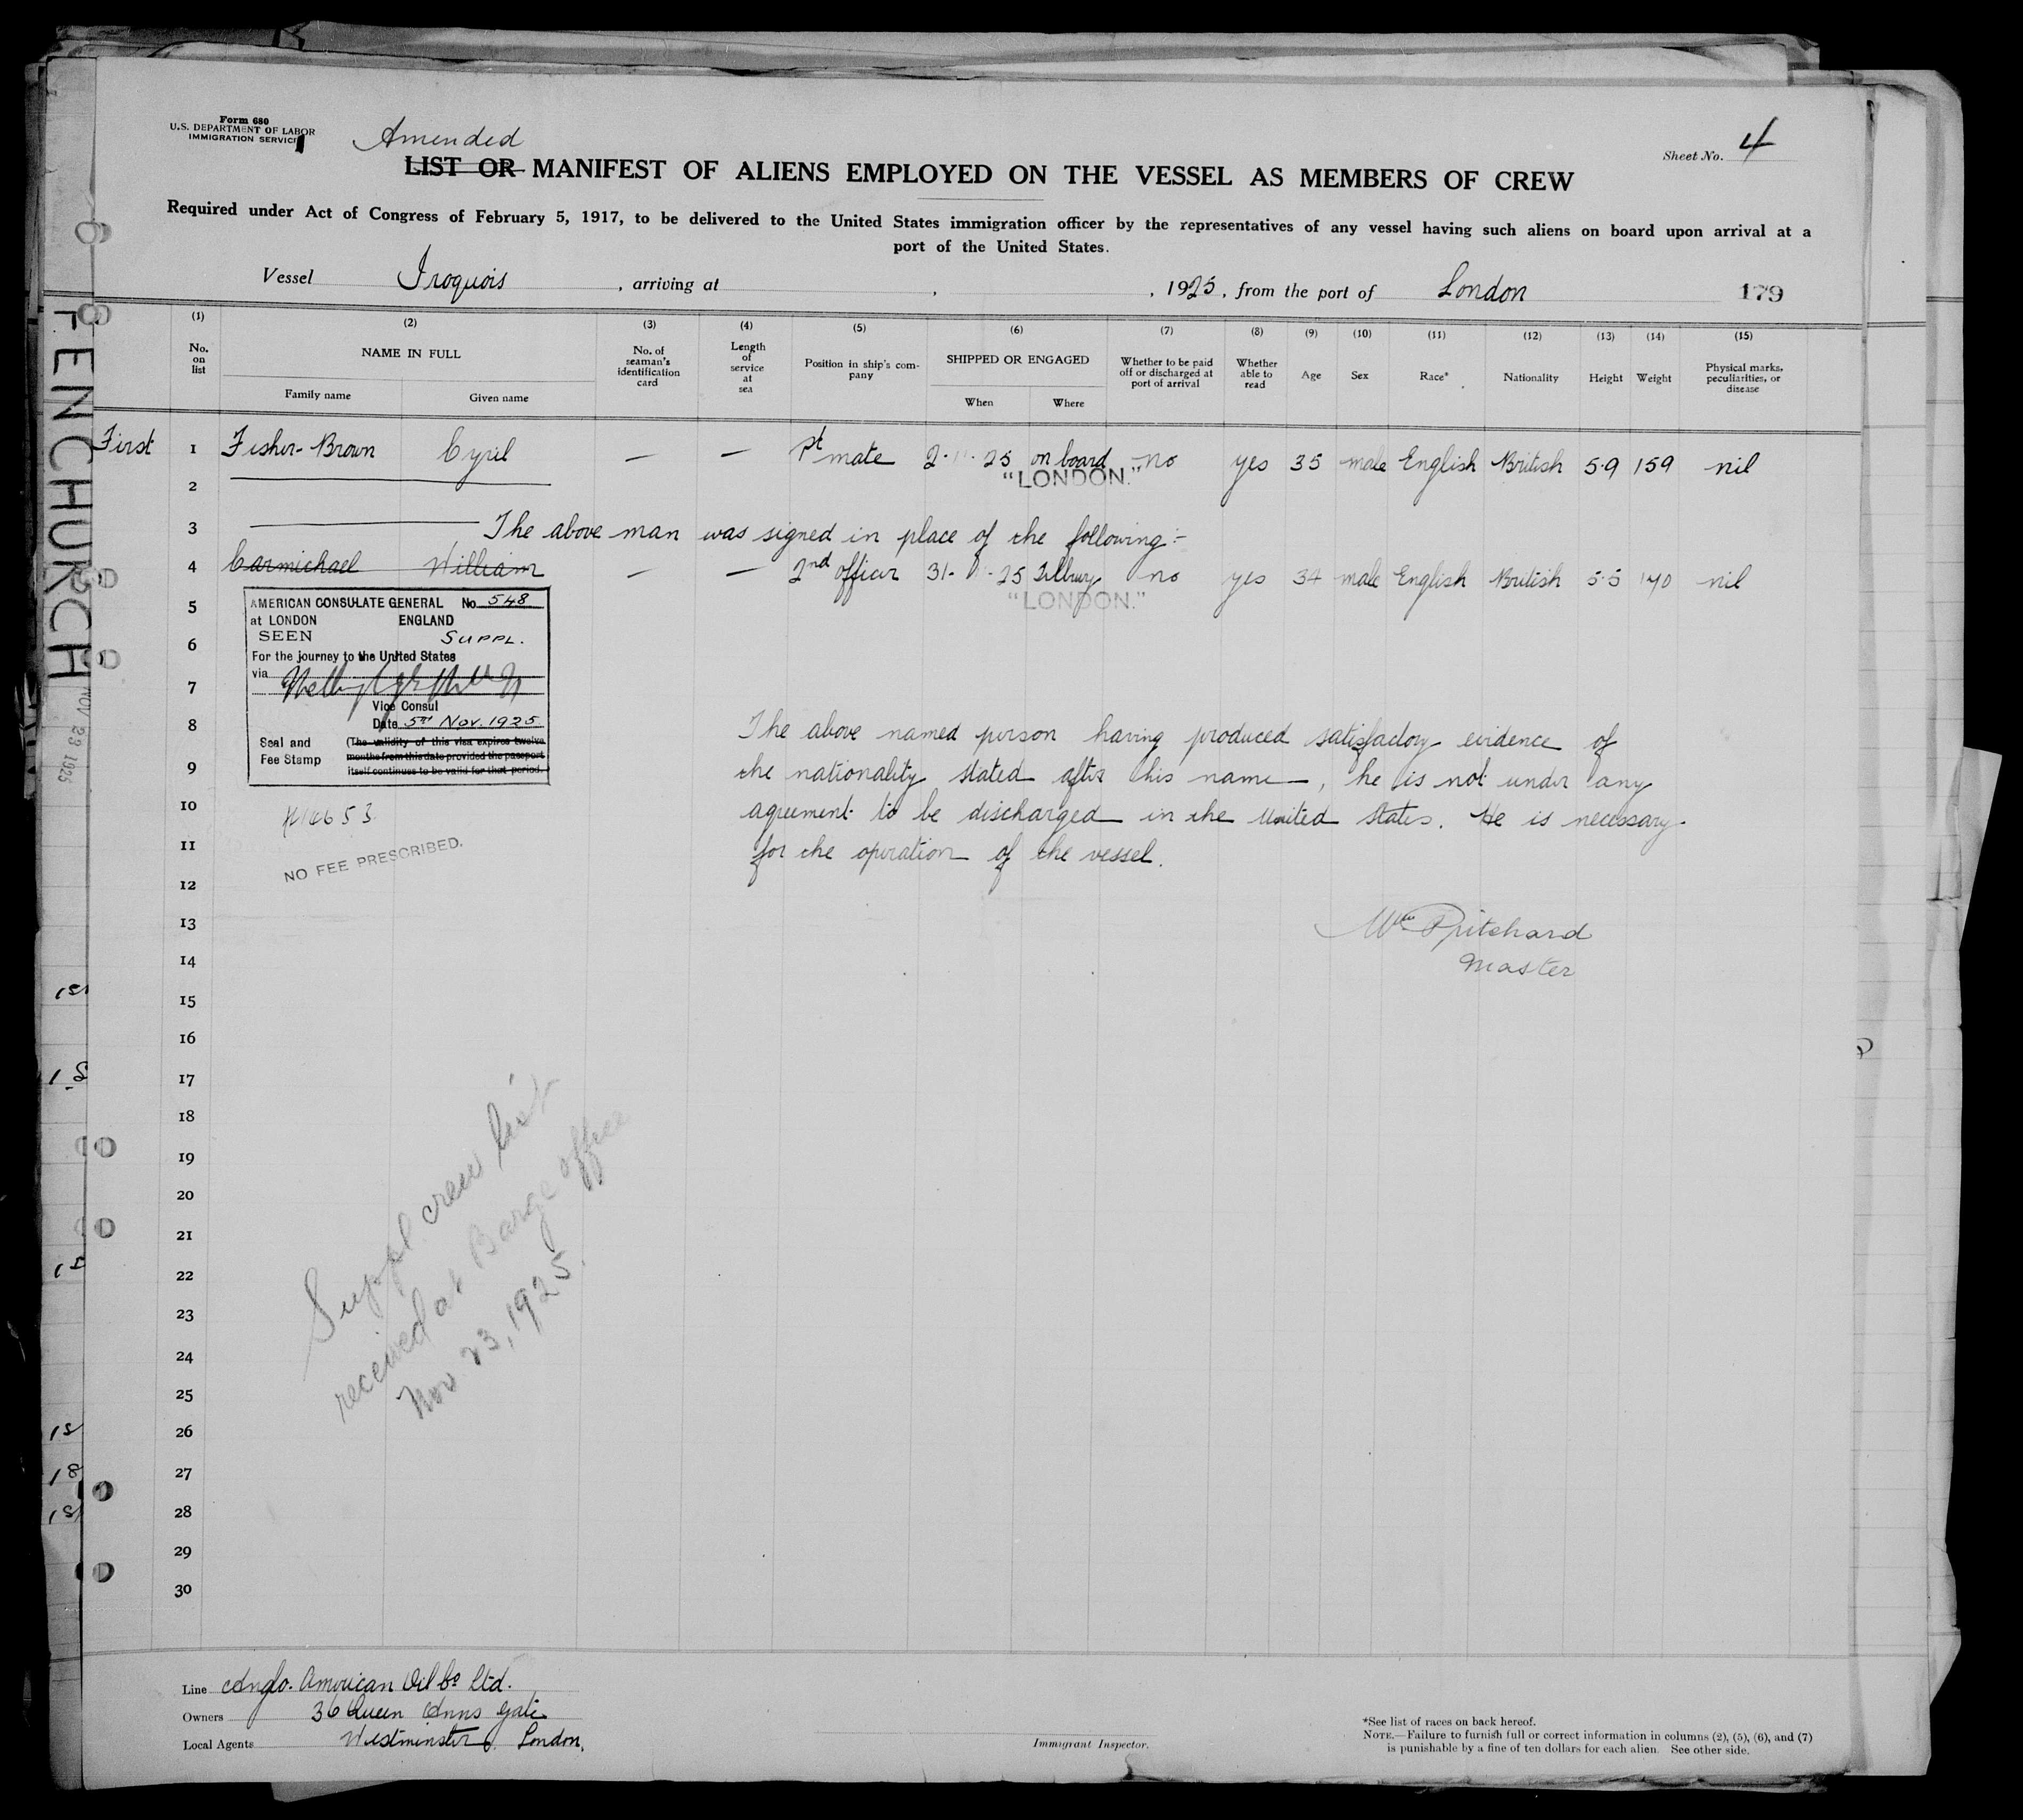 Form 680
U.S. DEPARTMENT OF LABOR
IMMIGRATION SERVICE
Amended
Sheet No. 4
LIST OR MANIFEST OF ALIENS EMPLOYED ON THE VESSEL AS MEMBERS OF CREW
Required under Act of Congress of February 5, 1917, to be delivered to the United States immigration officer by the representatives of any vessel having such aliens on board upon arrival at a
port of the United States.
Vessel Iroquois , arriving at , , 1925, from the port of London 179
(1) (2) (3) (4) (5) (6) (7) (8) (9) (10) (11) (12) (13) (14) (15)
No. on list NAME IN FULL No. of seaman's identification card Length of service at sea Position in ship's company SHIPPED OR ENGAGED Whether to be paid off or discharged at port of arrival Whether able to read Age Sex Race* Nationality Height Weight Physical marks, peculiarities, or disease
Family name Given name When Where
First 1 Fisher-Brown Cyril — — 1st mate 2-11-25 on board no yes 35 male English British 5·9 159 nil
"LONDON."
2
3 The above man was signed in place of the following:-
4 Carmichael William — — 2nd officer 31- -25 Tilbury no yes 34 male English British 5·5 140 nil
"LONDON."
5
AMERICAN CONSULATE GENERAL No. 548
at LONDON ENGLAND
6
SEEN SUPPL.
For the journey to the United States
via
7
Vice Consul
8
Date 5th Nov. 1925
Seal and Fee Stamp (The validity of this visa expires twelve
months from this date provided the passport
itself continues to be valid for that period.
The above named person having produced satisfactory evidence of
9 the nationality stated after his name, he is not under any
10 agreement to be discharged in the United States. He is necessary
11 for the operation of the vessel.
NO FEE PRESCRIBED.
12
13 Wm Pritchard
14 Master
15
16
17
18
19
20
21
22
23
24
25
26
27
28
29
30
Suppl. crew list
received at Barge office
Nov 23, 1925.
Line Anglo-American Oil Co Ltd.
Owners 36 Queen Anns Gate
Local Agents Westminster London.
Immigrant Inspector.
*See list of races on back hereof.
NOTE.—Failure to furnish full or correct information in columns (2), (5), (6), and (7)
is punishable by a fine of ten dollars for each alien. See other side.
FENCHURCH
NOV 23 1925